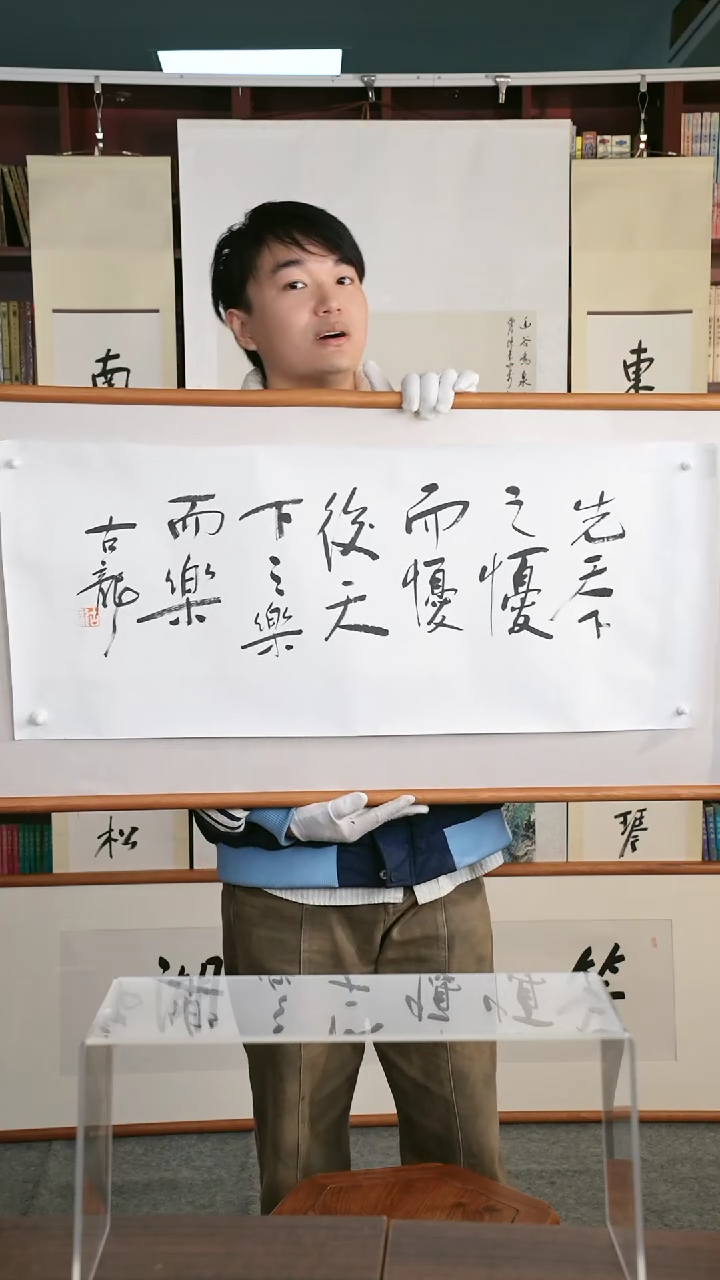 先天下
之憂
而憂
後天
下之樂
而樂
古龍
南
東
松
琴
幽谷鳴泉